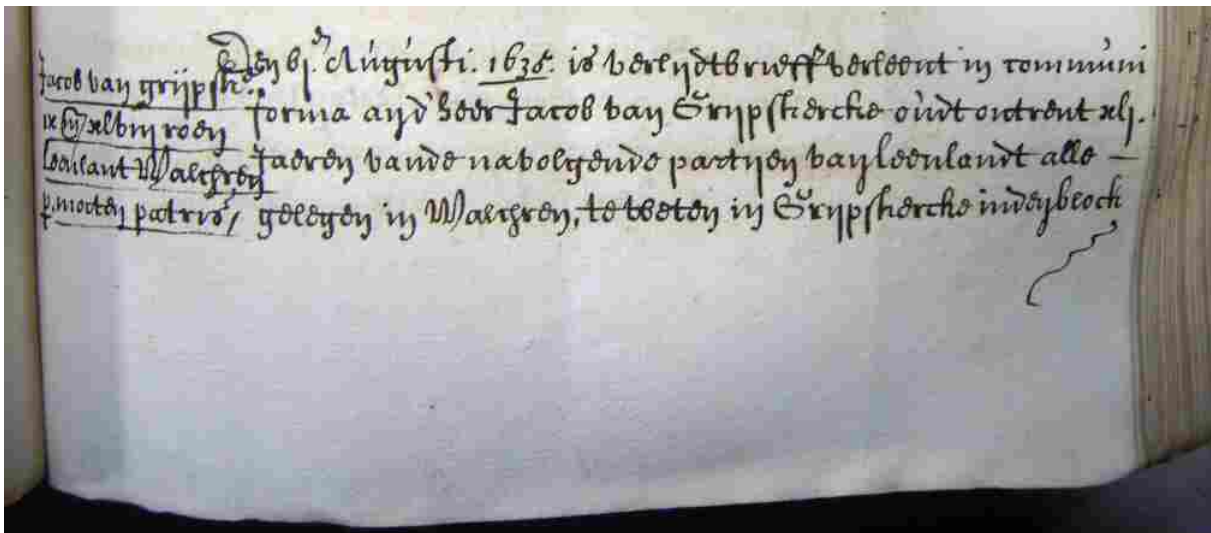 Jacob van grijpsk.
ix xlviij roen
Leenlant Walchren
p. mortem patris /
Den vj.en Augusti. 1638. is verlydtbrieff verleent in communi
forma aen d'heer Jacob van Grijpskercke oudt ontrent xlj.
Jaeren vande navolgende partijen van leenlandt alle —
gelegen in Walchren, te weten in Grijpskercke inden block